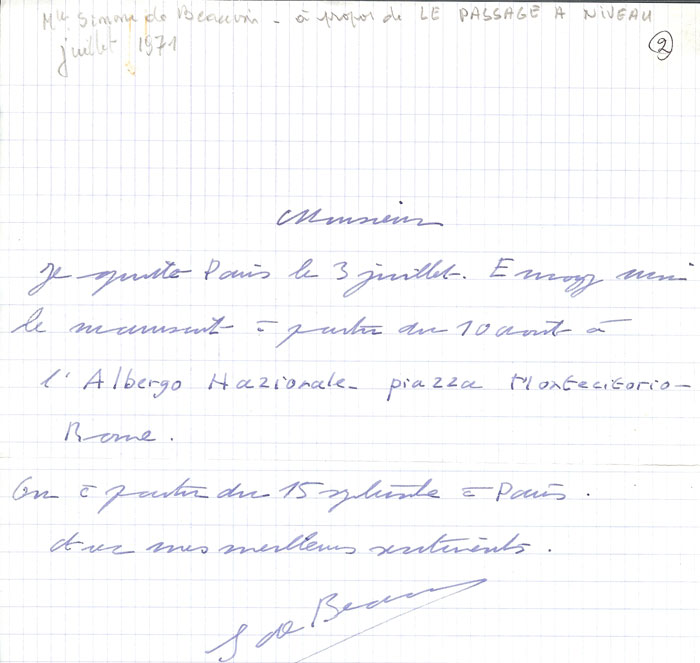 Mlle Simone de Beauvoir - à propos de LE PASSAGE A NIVEAU
juillet 1971
2
Monsieur
Je quitte Paris le 3 juillet. Envoyez moi
le manuscrit à partir du 10 août à
l'Albergo Nazionale - piazza Montecitorio -
Rome.
Ou à partir du 15 septembre à Paris.
Avec mes meilleurs sentiments.
S de Beauvoir